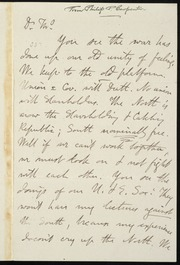 from Philip P. Carpenter
Dr. Th.s
You see the war has
done up our old unity of feeling.
We keep to the old platform,
Union & Cov. with Death. No union
with slaveholders. The North is
now the slaveholding &
Republic; South nominally free.
Well if we can't work together
we must look on & not fight
with each other. You on the
doings of our U. S. E. Soc? They
won't have my lectures against
the South, because my experience
doesn't cry up the North. We